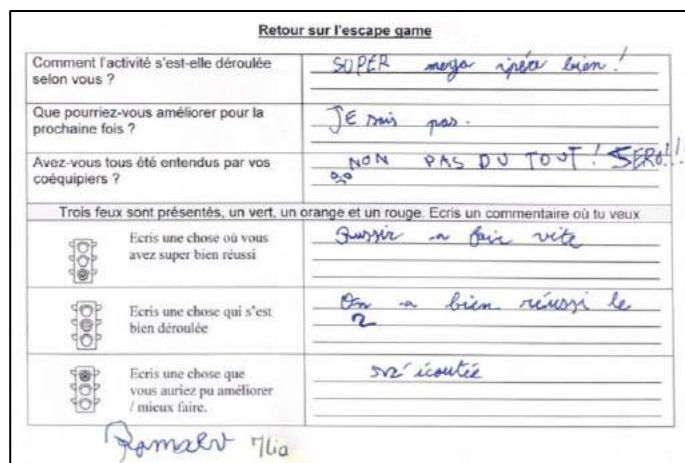 Retour sur l'escape game
Comment l'activité s'est-elle déroulée
selon vous ?
SUPER mega bien !
Que pourriez-vous améliorer pour la
prochaine fois ?
JE sais pas.
Avez-vous tous été entendus par vos
coéquipiers ?
NON PAS DU TOUT ! SERO!!!
Trois feux sont présentés, un vert, un orange et un rouge. Ecris un commentaire où tu veux
Ecris une chose où vous
avez super bien réussi
a fair vite
Ecris une chose qui s'est
bien déroulée
On a bien réussi le
2
Ecris une chose que
vous auriez pu améliorer
/ mieux faire.
écoutée